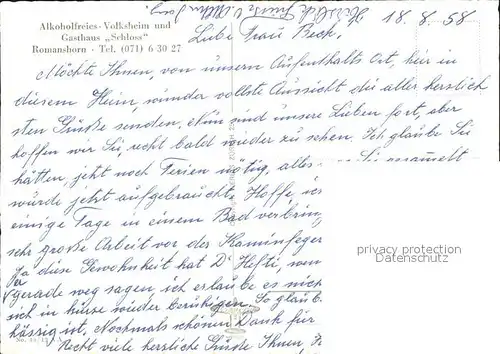 Alkoholfreies Volksheim und
Gasthaus „Schloss"
Romanshorn - Tel. (071) 6 30 27
18. 8. 58
Liebe Frau Beck,
Möchte Ihnen, von unserm Aufenthalts Ort, hier in
diesem Heim, wunder vollste Aussicht die aller herzlich
sten Grüße senden, sind unsere Lieben fort, aber
hoffen wir Sie, recht bald wieder zu sehen. Ich glaube Sie
hätten, jetzt noch Ferien nötig, alles Sie
würde jetzt aufgebraucht. Hoffe, ich
einige Tage in einem Bad verbrin
sehr große Arbeit vor der Kaminfeger
Ja diese Gewohnheit hat D' Hefti, wen
gerade weg sagen, ich erlaube es mich
sich in kürze wieder beruhigen. So glaub
hässig ist, Nochmals schönen Dank für
Recht viele herzliche Grüße Ihnen
privacy protection
Datenschutz